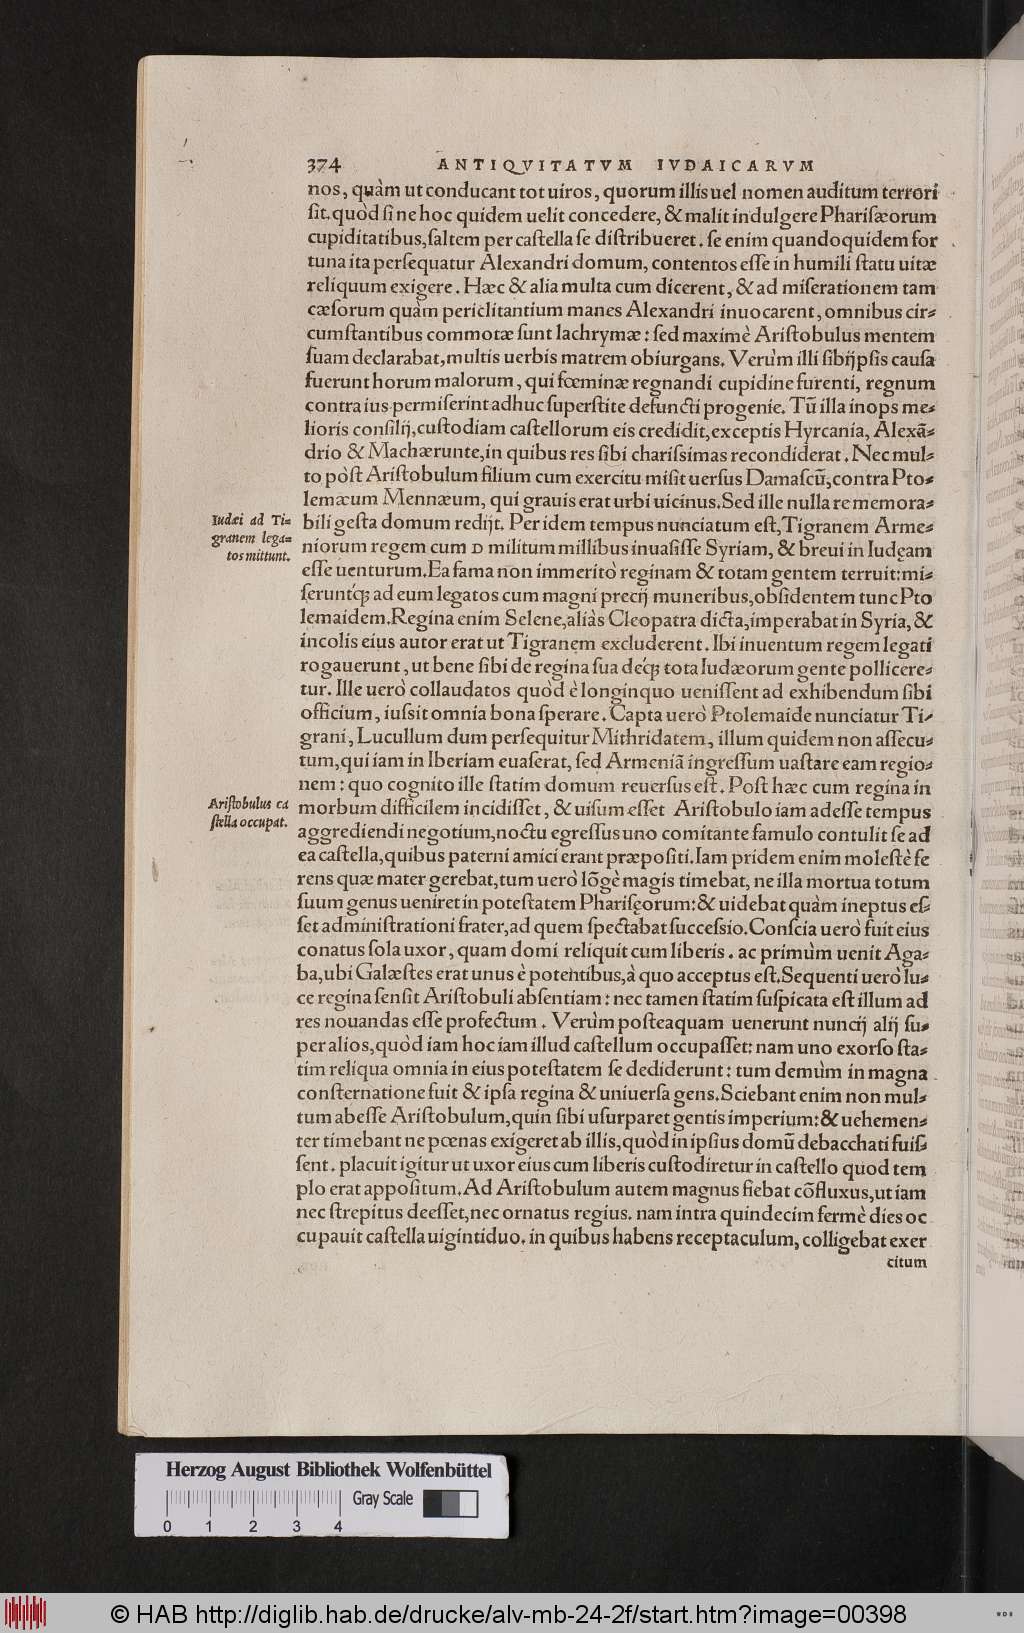 374 ANTIQVITATVM IVDAICARVM
nos, quàm ut conducant tot uiros, quorum illis uel nomen auditum terrori
ſit. quòd ſi ne hoc quidem uelit concedere, & malit indulgere Phariſæorum
cupiditatibus, ſaltem per caſtella ſe diſtribueret. ſe enim quandoquidem for
tuna ita perſequatur Alexandri domum, contentos eſſe in humili ſtatu uitæ
reliquum exigere. Hæc & alia multa cum dicerent, & ad miſerationem tam
cæſorum quàm periclitantium manes Alexandri inuocarent, omnibus cir-
cumſtantibus commotæ ſunt lachrymæ: ſed maximè Ariſtobulus mentem
ſuam declarabat, multis uerbis matrem obiurgans. Verùm illi ſibijpſis cauſa
fuerunt horum malorum, qui fœminæ regnandi cupidine furenti, regnum
contra ius permiſerint adhuc ſuperſtite defuncti progenie. Tũ illa inops me-
lioris conſilij, cuſtodiam caſtellorum eis credidit, exceptis Hyrcania, Alexã-
drio & Machærunte, in quibus res ſibi chariſsimas recondiderat. Nec mul-
to pòſt Ariſtobulum filium cum exercitu miſit uerſus Damaſcũ, contra Pto-
lemæum Mennæum, qui grauis erat urbi uicinus. Sed ille nulla re memora-
Iudæi ad Ti-
granem lega-
tos mittunt.
bili geſta domum redijt. Per idem tempus nunciatum eſt, Tigranem Arme-
niorum regem cum D militum millibus inuaſiſſe Syriam, & breui in Iudęam
eſſe uenturum. Ea fama non immeritò reginam & totam gentem terruit: mi-
ſeruntq́ꝫ ad eum legatos cum magni precij muneribus, obſidentem tunc Pto
lemaidem. Regina enim Selene, aliàs Cleopatra dicta, imperabat in Syria, &
incolis eius autor erat ut Tigranem excluderent. Ibi inuentum regem legati
rogauerunt, ut bene ſibi de regina ſua deq́ꝫ tota Iudæorum gente pollicere-
tur. Ille uerò collaudatos quòd è longinquo ueniſſent ad exhibendum ſibi
officium, iuſsit omnia bona ſperare. Capta uerò Ptolemaide nunciatur Ti-
grani, Lucullum dum perſequitur Mithridatem, illum quidem non aſſecu-
tum, qui iam in Iberiam euaſerat, ſed Armeniã ingreſſum uaſtare eam regio-
nem: quo cognito ille ſtatim domum reuerſus eſt. Poſt hæc cum regina in
Ariſtobulus ca
ſtella occupat.
morbum difficilem incidiſſet, & uiſum eſſet Ariſtobulo iam adeſſe tempus
aggrediendi negotium, noctu egreſſus uno comitante famulo contulit ſe ad
ea caſtella, quibus paterni amici erant præpoſiti. Iam pridem enim moleſtè fe
rens quæ mater gerebat, tum uerò lõgè magis timebat, ne illa mortua totum
ſuum genus ueniret in poteſtatem Phariſęorum: & uidebat quàm ineptus eſ-
ſet adminiſtrationi frater, ad quem ſpectabat ſucceſsio. Conſcia uerò fuit eius
conatus ſola uxor, quam domi reliquit cum liberis. ac primùm uenit Aga-
ba, ubi Galæſtes erat unus è potentibus, à quo acceptus eſt. Sequenti uerò lu-
ce regina ſenſit Ariſtobuli abſentiam: nec tamen ſtatim ſuſpicata eſt illum ad
res nouandas eſſe profectum. Verùm poſteaquam uenerunt nuncij alij ſu-
per alios, quòd iam hoc iam illud caſtellum occupaſſet: nam uno exorſo ſta-
tim reliqua omnia in eius poteſtatem ſe dediderunt: tum demùm in magna
conſternatione fuit & ipſa regina & uniuerſa gens. Sciebant enim non mul-
tum abeſſe Ariſtobulum, quin ſibi uſurparet gentis imperium: & uehemen-
ter timebant ne pœnas exigeret ab illis, quòd in ipſius domũ debacchati fuiſ-
ſent. placuit igitur ut uxor eius cum liberis cuſtodiretur in caſtello quod tem
plo erat appoſitum. Ad Ariſtobulum autem magnus fiebat cõfluxus, ut iam
nec ſtrepitus deeſſet, nec ornatus regius. nam intra quindecim fermè dies oc
cupauit caſtella uigintiduo. in quibus habens receptaculum, colligebat exer
citum
Herzog August Bibliothek Wolfenbüttel
Gray Scale
0 1 2 3 4
© HAB http://diglib.hab.de/drucke/alv-mb-24-2f/start.htm?image=00398